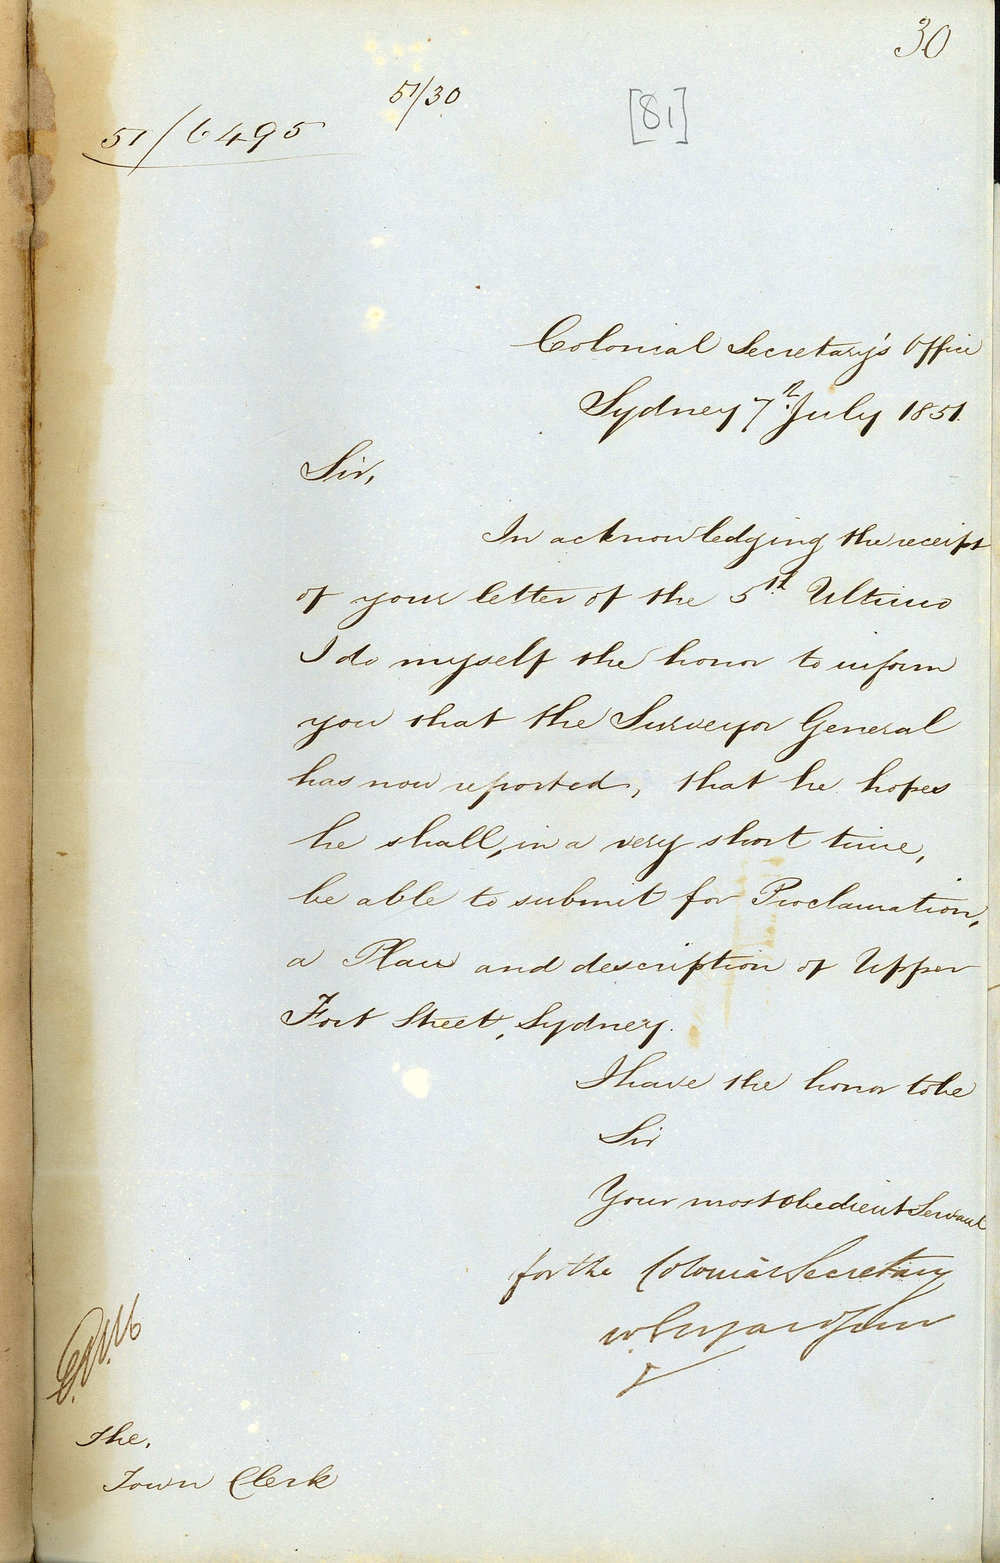 30
51/30
[81]
51/6495
Colonial Secretary's Office
Sydney 7th July 1851.
Sir,
In acknowledging the receipt
of your letter of the 5th Ultimo
I do myself the honor to inform
you that the Surveyor General
has now reported, that he hopes
he shall, in a very short time,
be able to submit for Proclamation,
a Plan and description of Upper
Fort Street, Sydney.
I have the honor to be
Sir
Your most obedient Servant
for the Colonial Secretary
The,
Town Clerk